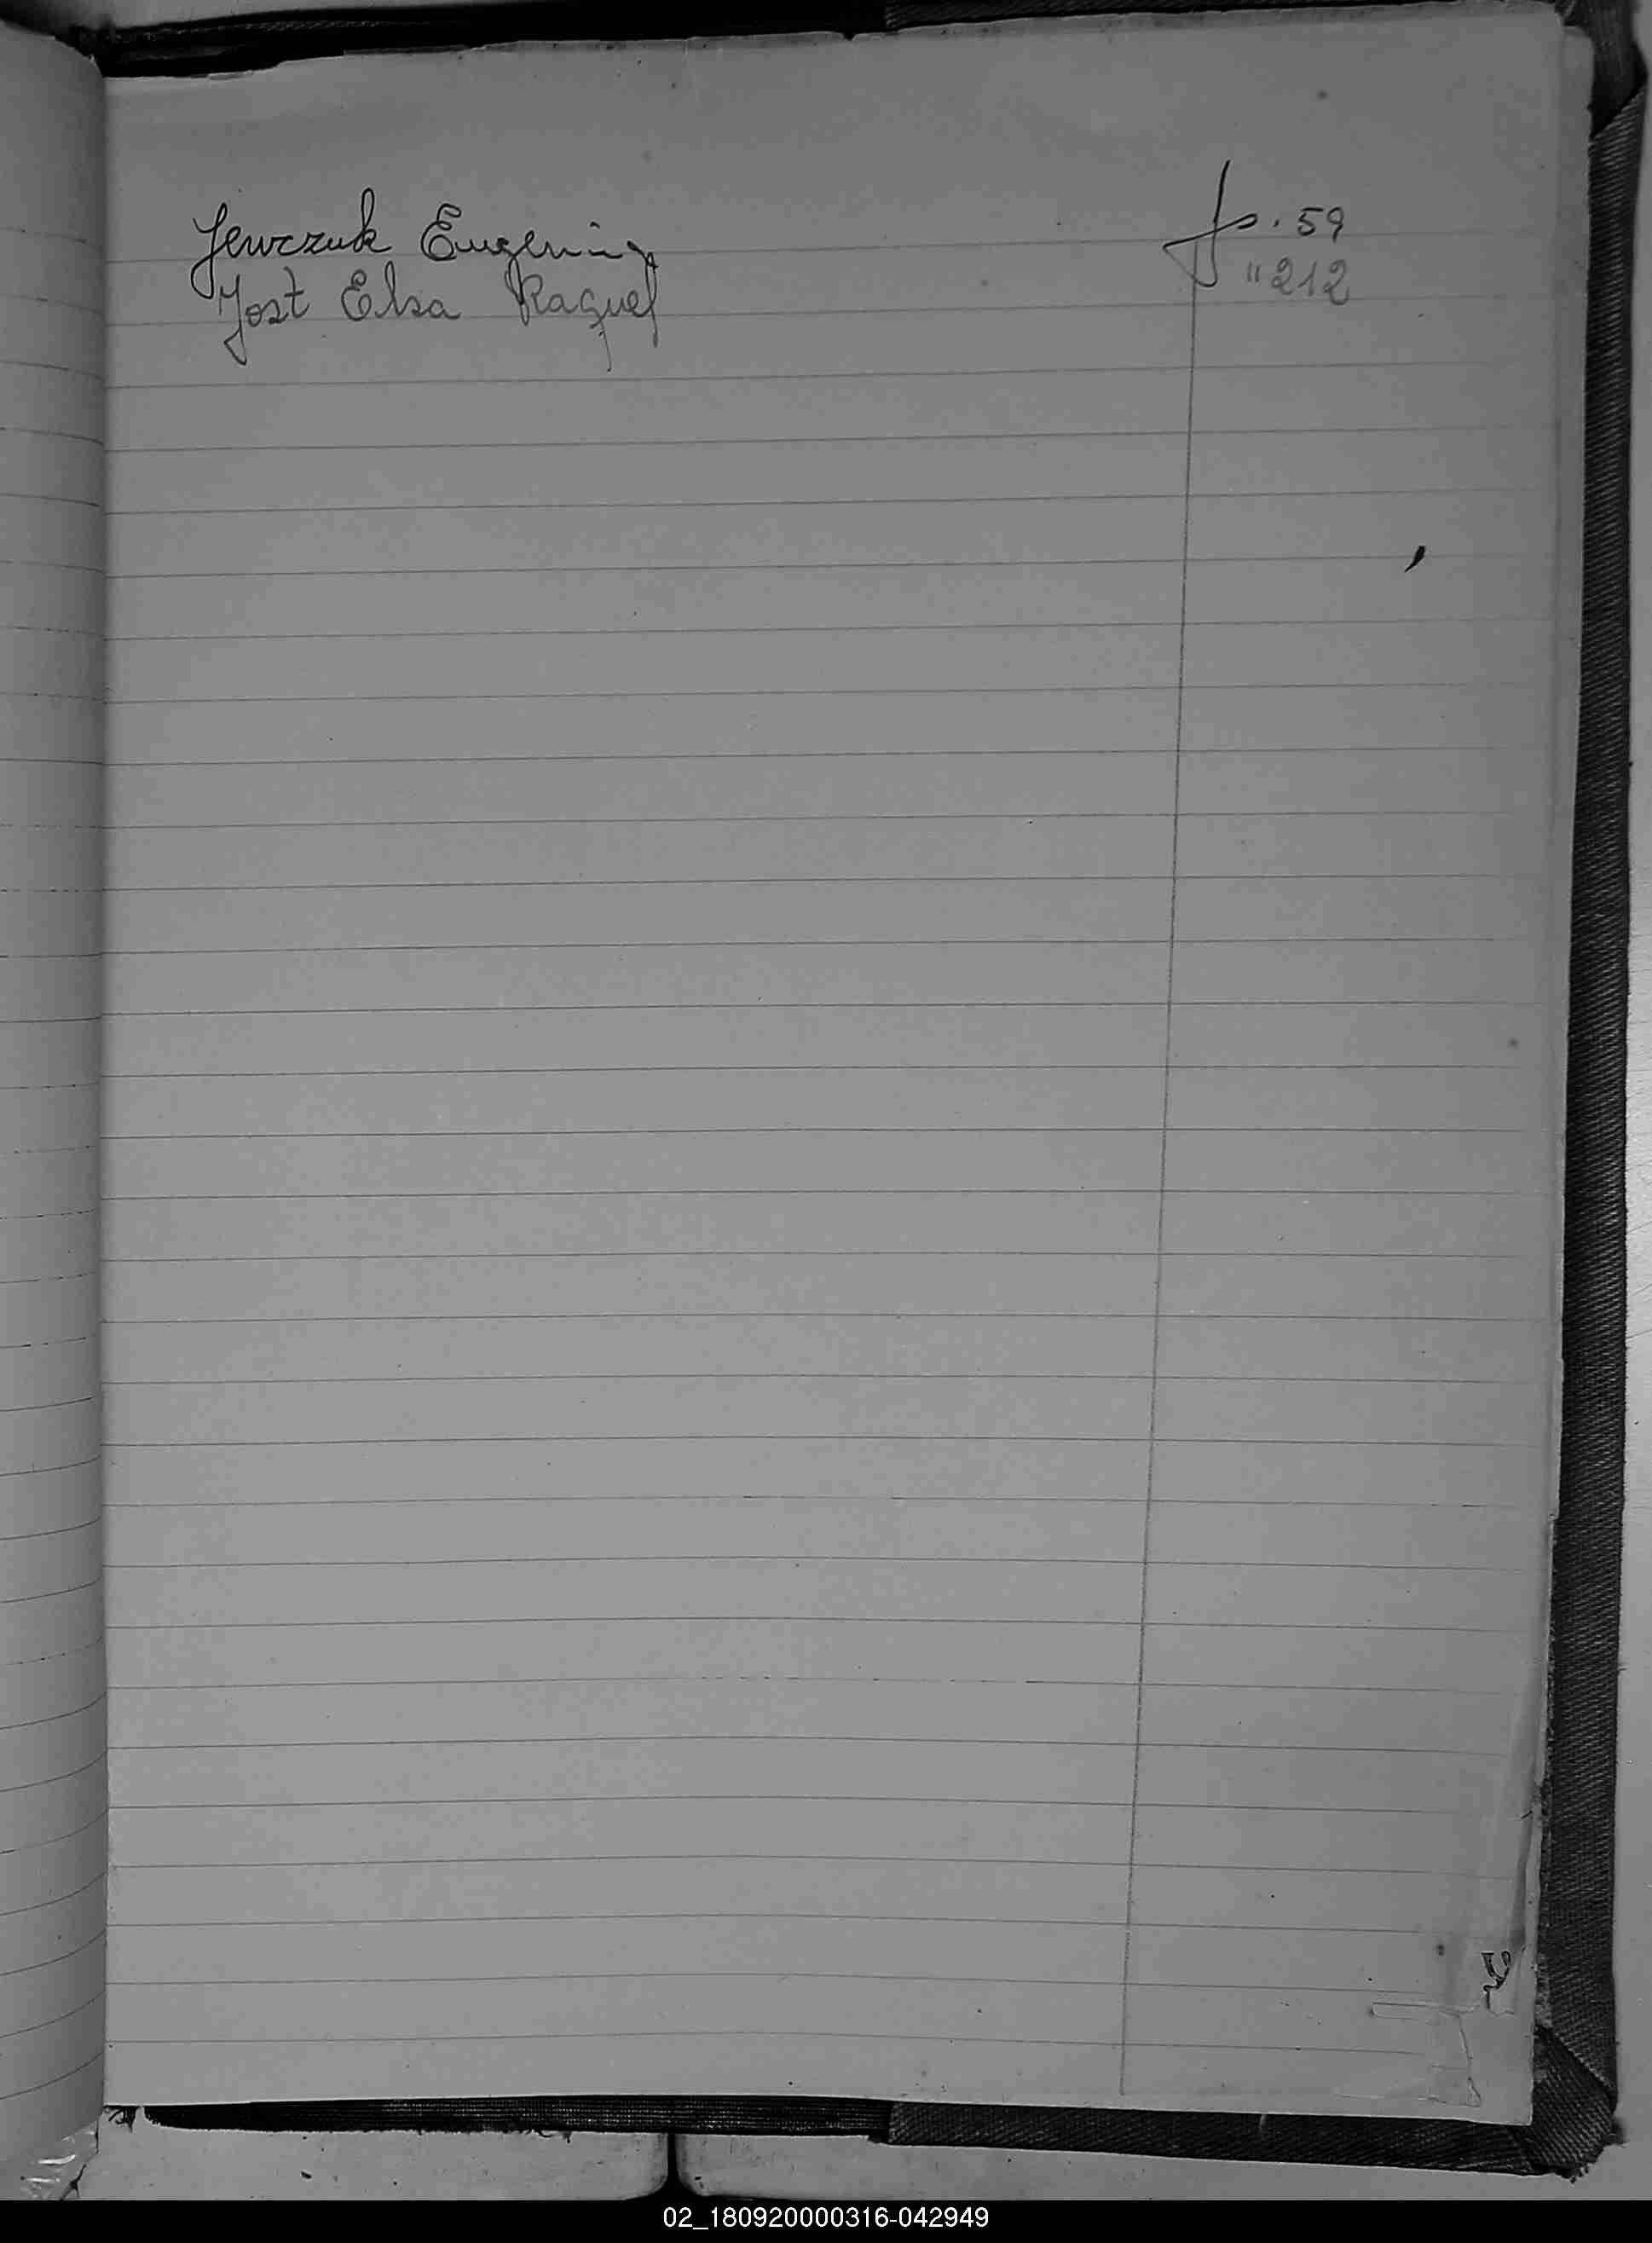 Jewczuk Eugenia p. 59
Jost Elsa Raquel " 212
02_180920000316-042949